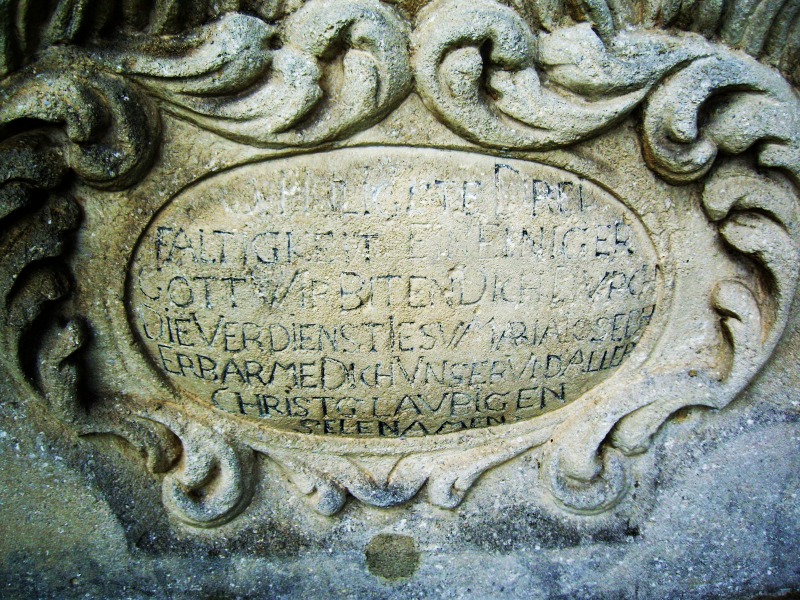 O HEILIGSTE DREI
FALTIGKEIT EIN EINIGER
GOTT WIR BITEN DICH DVRCH
DIE VERDIENST IESV MARIA IOSEPH
ERBARME DICH VNSER VND ALLER
CHRISTGLAVBIGEN
SELEN AMEN